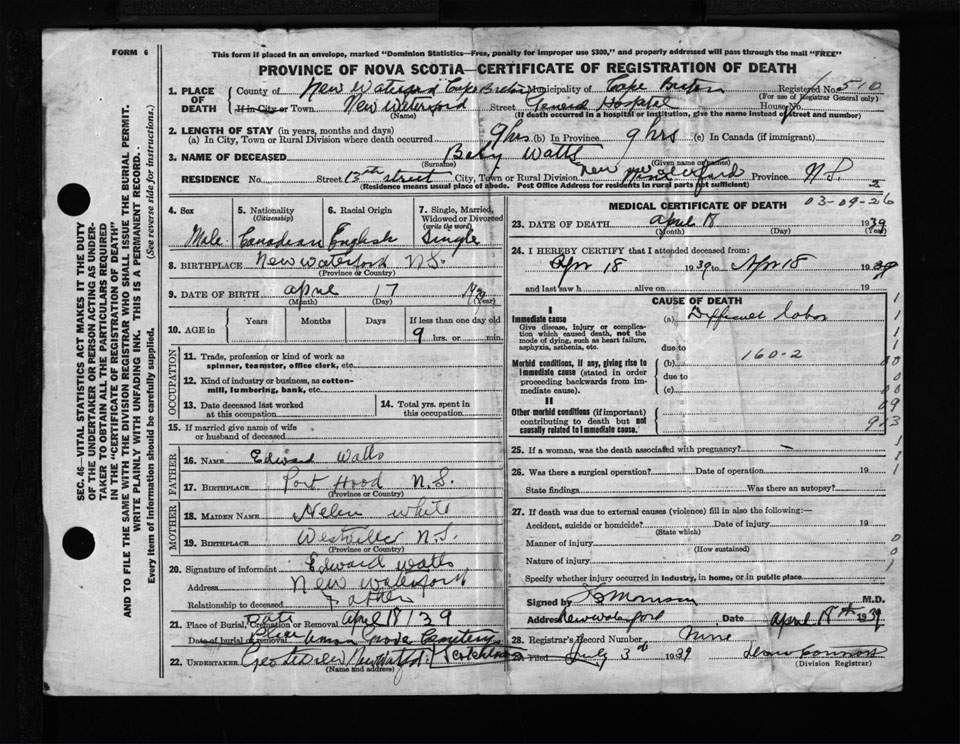 FORM 6
This form if placed in an envelope, marked "Dominion Statistics—Free, penalty for improper use $300," and properly addressed will pass through the mail "FREE"
PROVINCE OF NOVA SCOTIA—CERTIFICATE OF REGISTRATION OF DEATH
SEC. 46—VITAL STATISTICS ACT MAKES IT THE DUTY
OF THE UNDERTAKER OR PERSON ACTING AS UNDER-
TAKER TO OBTAIN ALL THE PARTICULARS REQUIRED
IN THE "CERTIFICATE OF REGISTRATION OF DEATH"
AND TO FILE THE SAME WITH THE DIVISION REGISTRAR WHO SHALL ISSUE THE BURIAL PERMIT.
WRITE PLAINLY WITH UNFADING INK. THIS IS A PERMANENT RECORD.
Every item of Information should be carefully supplied. (See reverse side for instructions.)
1. PLACE OF DEATH County of New Waterford Cape Breton Municipality of Cape Breton Registered No. 510
(For use of Registrar General only)
If in City or Town New Waterford Street General Hospital House No.
(Name) (If death occurred in a hospital or institution, give the name instead of street and number)
2. LENGTH OF STAY (in years, months and days)
(a) In City, Town or Rural Division where death occurred 9 hrs (b) In Province 9 hrs (c) In Canada (if immigrant)
3. NAME OF DECEASED Baby Watts
(Surname) (Given name or names)
RESIDENCE No. Street 13th street City, Town or Rural Division New Waterford Province N.S.
(Residence means usual place of abode. Post Office Address for residents in rural parts not sufficient)
4. Sex Male
5. Nationality (Citizenship) Canadian
6. Racial Origin English
7. Single, Married, Widowed or Divorced (write the word) Single
8. BIRTHPLACE New Waterford N.S.
(Province or Country)
9. DATE OF BIRTH April 17 1939
(Month) (Day) (Year)
10. AGE in Years Months Days If less than one day old
9 hrs. or min.
OCCUPATION
11. Trade, profession or kind of work as
spinner, teamster, office clerk, etc.
12. Kind of industry or business, as cotton-
mill, lumbering, bank, etc.
13. Date deceased last worked
at this occupation
14. Total yrs. spent in
this occupation
15. If married give name of wife
or husband of deceased
FATHER
16. NAME Edward Watts
17. BIRTHPLACE Port Hood N.S.
(Province or Country)
MOTHER
18. MAIDEN NAME Helen White
19. BIRTHPLACE Westville N.S.
(Province or Country)
20. Signature of informant Edward Watts
Address New Waterford
Relationship to deceased Father
21. Place of Burial, Cremation or Removal Date April 18/39
Date of burial or removal Place Grove Cemetery
22. UNDERTAKER
(Name and address)
MEDICAL CERTIFICATE OF DEATH 03-09-26
3
23. DATE OF DEATH April 18 1939
(Month) (Day) (Year)
24. I HEREBY CERTIFY that I attended deceased from:
Apr 18 1939 to Apr 18 1939
and last saw h alive on 19
CAUSE OF DEATH
I
Immediate cause (a) Difficult labor
Give disease, injury or complica-
tion which caused death, not the
mode of dying, such as heart failure,
asphyxia, asthenia, etc.
due to
160-2
Morbid conditions, if any, giving rise to (b)
immediate cause (stated in order
proceeding backwards from im-
mediate cause).
due to
(c)
II
Other morbid conditions (if important)
contributing to death but not
causally related to immediate cause.
25. If a woman, was the death associated with pregnancy?
26. Was there a surgical operation? Date of operation 19
State findings Was there an autopsy?
27. If death was due to external causes (violence) fill in also the following:—
Accident, suicide or homicide? Date of injury 19
(State which)
Manner of injury
(How sustained)
Nature of injury
Specify whether injury occurred in industry, in home, or in public place
Signed by Morrison M.D.
Address New Waterford Date April 18th 1939
28. Registrar's Record Number Nine
29. Filed July 3rd 1939
(Division Registrar)